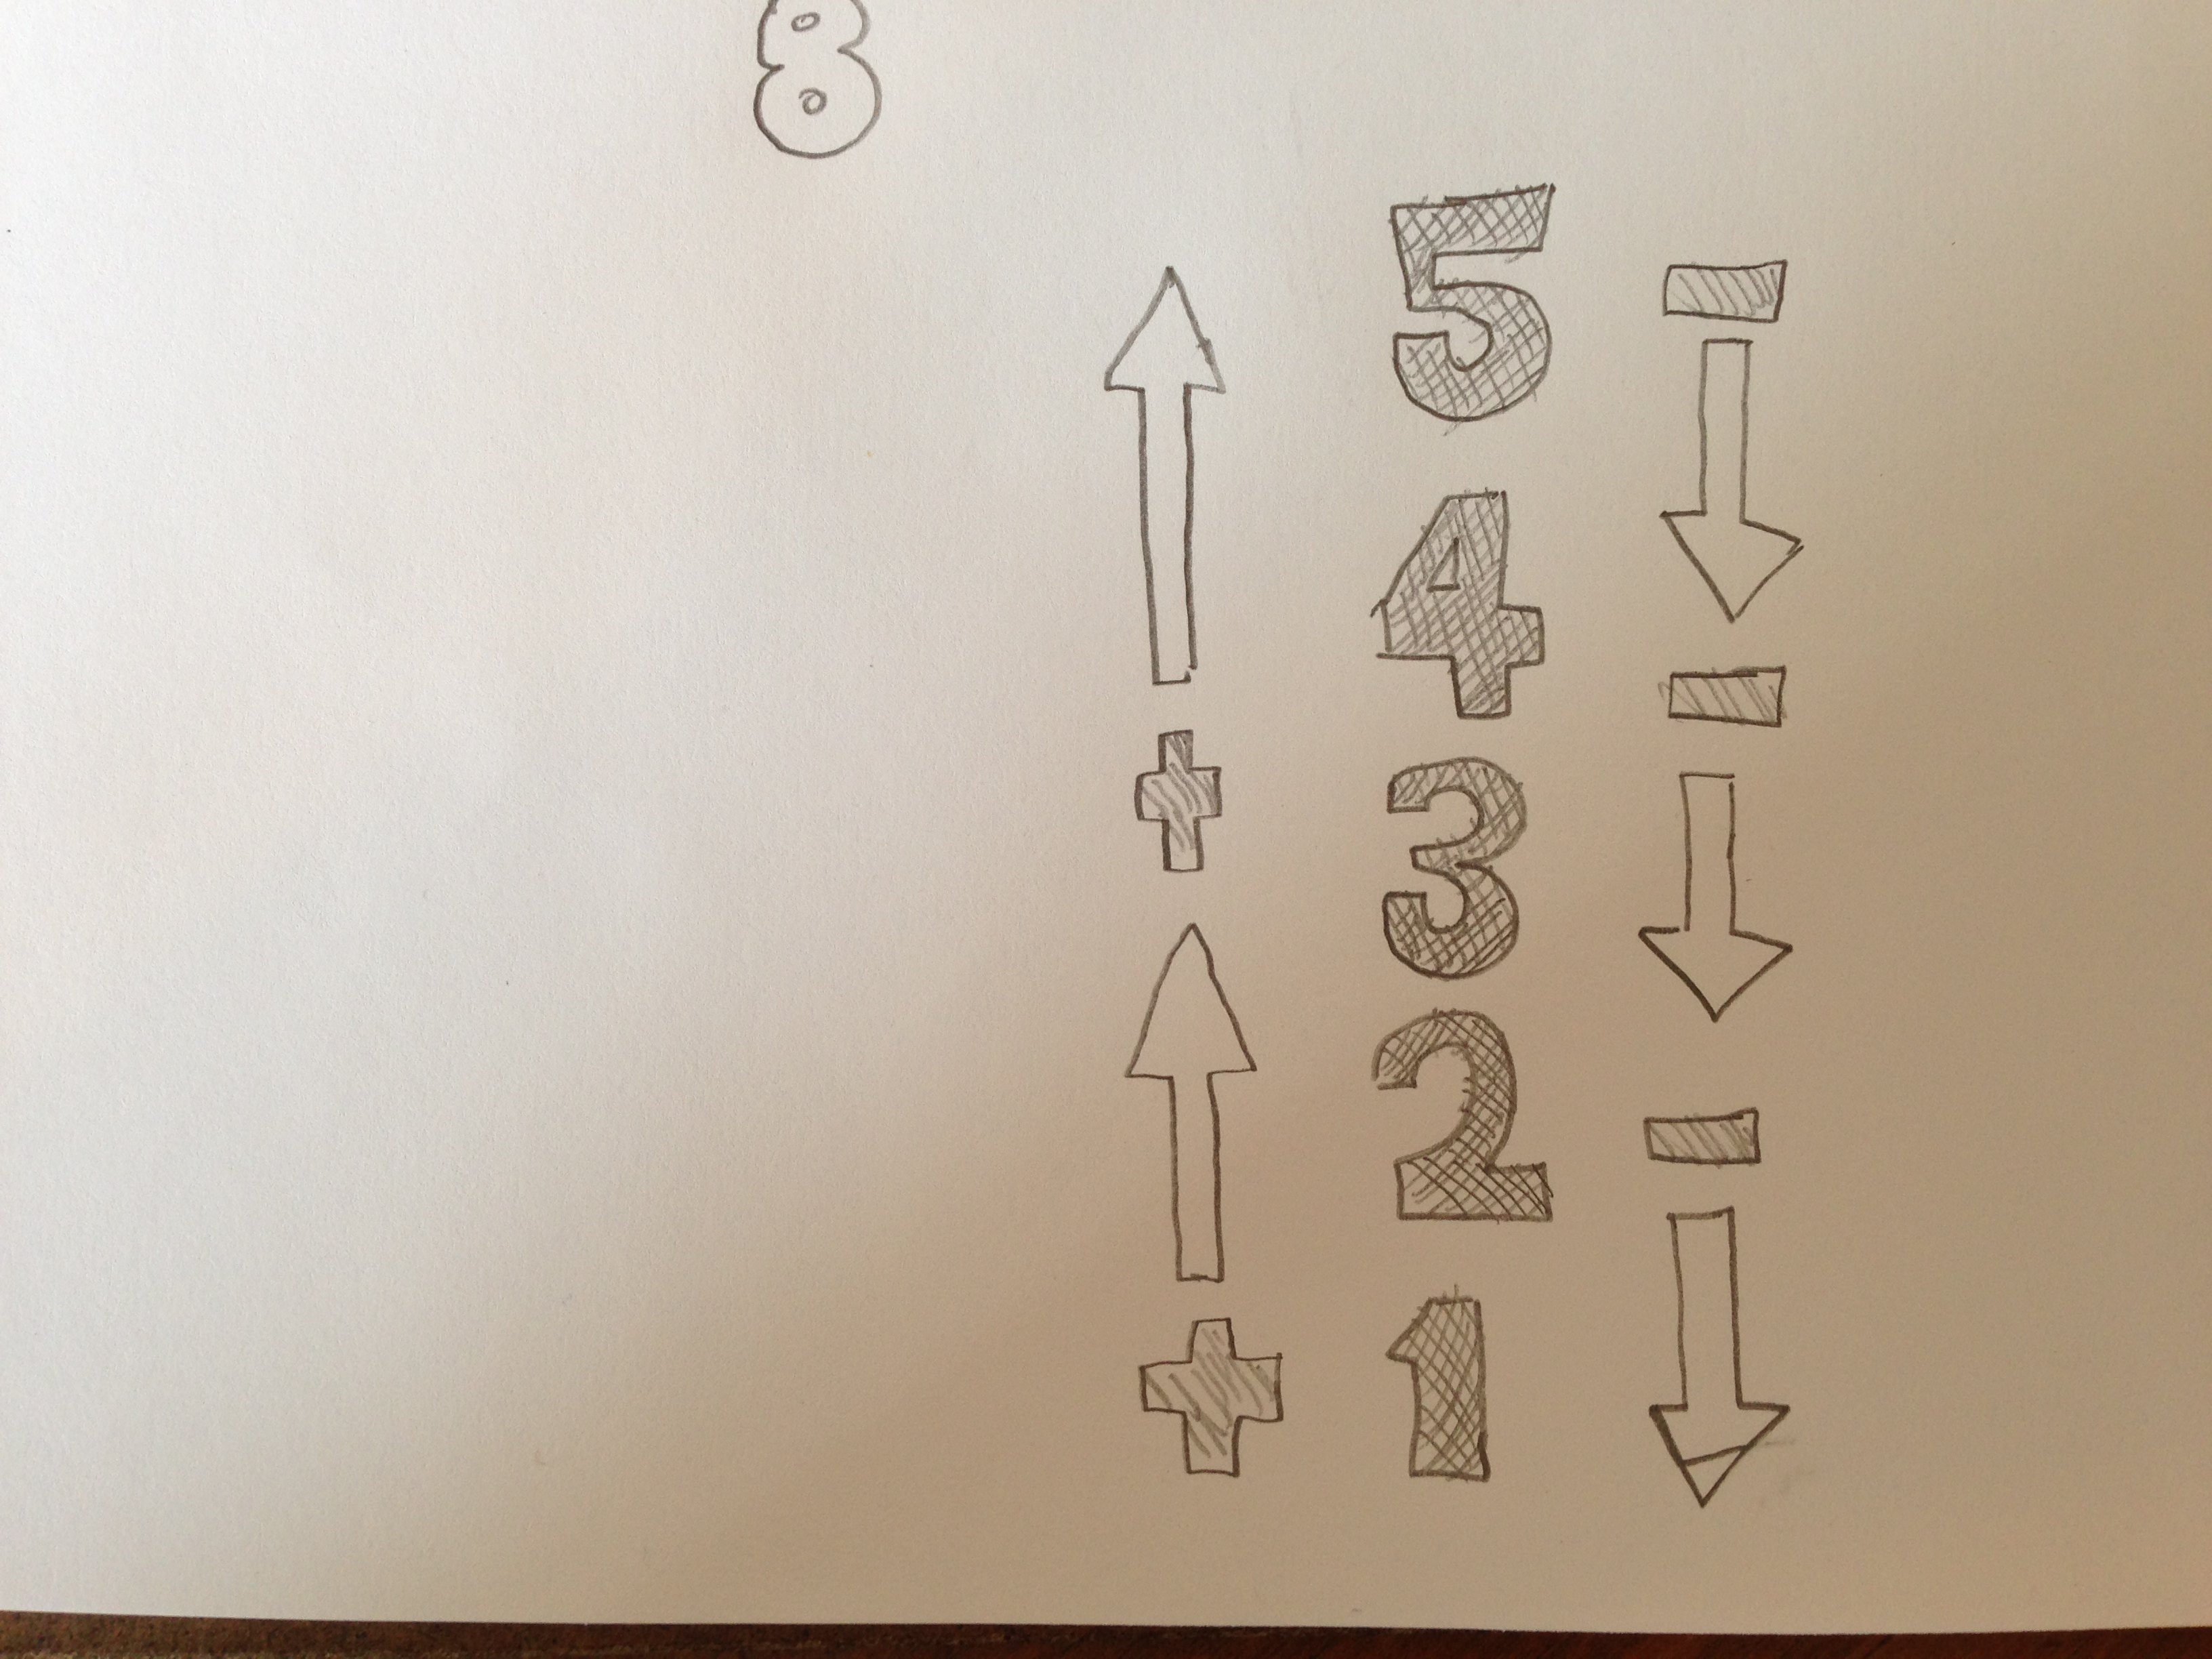 8
5 -
4 -
+ 3
2 -
+ 1